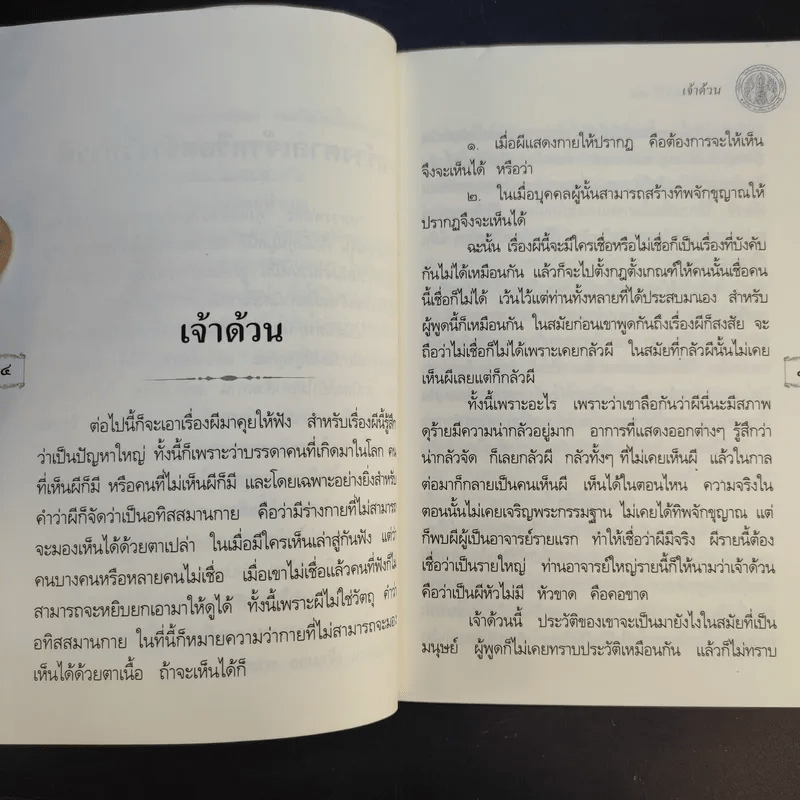 เจ้าด้วน
๔
ต่อไปนี้ก็จะเอาเรื่องผีมาคุยให้ฟัง สำหรับเรื่องผีนี้รู้สึก
ว่าเป็นปัญหาใหญ่ ทั้งนี้ก็เพราะว่าบรรดาคนที่เกิดมาในโลก คน
ที่เห็นผีก็มี หรือคนที่ไม่เห็นผีก็มี และโดยเฉพาะอย่างยิ่งสำหรับ
คำว่าผีก็จัดว่าเป็นอทิสสมานกาย คือว่ามีร่างกายที่ไม่สามารถ
จะมองเห็นได้ด้วยตาเปล่า ในเมื่อมีใครเห็นเล่าสู่กันฟัง แต่ว่า
คนบางคนหรือหลายคนไม่เชื่อ เมื่อเขาไม่เชื่อแล้วคนที่ฟังก็ไม่
สามารถจะหยิบยกเอามาให้ดูได้ ทั้งนี้เพราะผีไม่ใช่วัตถุ คำว่า
อทิสสมานกาย ในที่นี้ก็หมายความว่ากายที่ไม่สามารถจะมอง
เห็นได้ด้วยตาเนื้อ ถ้าจะเห็นได้ก็
เจ้าด้วน
๑. เมื่อผีแสดงกายให้ปรากฏ คือต้องการจะให้เห็น
จึงจะเห็นได้ หรือว่า
๒. ในเมื่อบุคคลผู้นั้นสามารถสร้างทิพจักขุญาณให้
ปรากฏจึงจะเห็นได้
ฉะนั้น เรื่องผีนี้จะมีใครเชื่อหรือไม่เชื่อก็เป็นเรื่องที่บังคับ
กันไม่ได้เหมือนกัน แล้วก็จะไปตั้งกฎตั้งเกณฑ์ให้คนนั้นเชื่อคน
นี้เชื่อก็ไม่ได้ เว้นไว้แต่ท่านทั้งหลายที่ได้ประสบมาเอง สำหรับ
ผู้พูดนี้ก็เหมือนกัน ในสมัยก่อนเขาพูดกันถึงเรื่องผีก็สงสัย จะ
ถือว่าไม่เชื่อก็ไม่ได้เพราะเคยกลัวผี ในสมัยที่กลัวผีนั้นไม่เคย
เห็นผีเลยแต่ก็กลัวผี
ทั้งนี้เพราะอะไร เพราะว่าเขาลือกันว่าผีนี่นะมีสภาพ
ดุร้ายมีความน่ากลัวอยู่มาก อาการที่แสดงออกต่างๆ รู้สึกว่า
น่ากลัวจัด ก็เลยกลัวผี กลัวทั้งๆ ที่ไม่เคยเห็นผี แล้วในกาล
ต่อมาก็กลายเป็นคนเห็นผี เห็นได้ในตอนไหน ความจริงใน
ตอนนั้นไม่เคยเจริญพระกรรมฐาน ไม่เคยได้ทิพจักขุญาณ แต่
ก็พบผีผู้เป็นอาจารย์รายแรก ทำให้เชื่อว่าผีมีจริง ผีรายนี้ต้อง
เชื่อว่าเป็นรายใหญ่ ท่านอาจารย์ใหญ่รายนี้ก็ให้นามว่าเจ้าด้วน
คือว่าเป็นผีหัวไม่มี หัวขาด คือคอขาด
เจ้าด้วนนี้ ประวัติของเขาจะเป็นมายังไงในสมัยที่เป็น
มนุษย์ ผู้พูดก็ไม่เคยทราบประวัติเหมือนกัน แล้วก็ไม่ทราบ